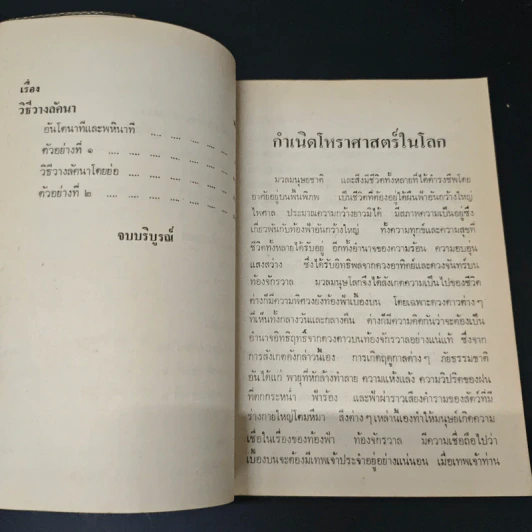 เรื่อง
วิธีวางลัคนา
อันโตนาทีและพหินาที .... .... .... ....
ตัวอย่างที่ ๑ .... .... .... .... ....
วิธีวางลัคนาโดยย่อ .... .... .... ....
ตัวอย่างที่ ๒ .... .... .... .... ....
จบบริบูรณ์
กำเนิดโหราศาสตร์ในโลก
มวลมนุษยชาติ และสิ่งมีชีวิตทั้งหลายที่ได้ดำรงชีพโดย
อาศัยอยู่บนพื้นพิภพ เป็นชีวิตที่ต้องอยู่ใต้ผืนฟ้าอันกว้างใหญ่
ไพศาล ประมาณความกว้างยาวมิได้ มีสภาพความเป็นอยู่ซึ่ง
เกี่ยวพันกับท้องฟ้าอันกว้างใหญ่ ทั้งความทุกข์และความสุขที่
ชีวิตทั้งหลายได้รับอยู่ อีกทั้งอำนาจของความร้อน ความอบอุ่น
แสงสว่าง ซึ่งได้รับอิทธิพลจากดวงอาทิตย์และดวงจันทร์บน
ท้องจักรวาล มวลมนุษโลกจึงได้สังเกตความเป็นไปของชีวิต
ต่างก็มีความพิศวงยังท้องฟ้าเบื้องบน โดยเฉพาะดวงดาวต่างๆ
ที่เห็นทั้งกลางวันและกลางคืน ต่างก็มีความคิดกันว่าจะต้องเป็น
อำนาจอิทธิฤทธิ์จากดวงดาวบนท้องจักรวาลอย่างแน่แท้ ซึ่งจาก
การสังเกตดังกล่าวนี้เอง การเกิดฤดูกาลต่างๆ ภัยธรรมชาติ
อันได้แก่ พายุที่หักล้างทำลาย ความแห้งแล้ง ความวิปริตของฝน
ที่ตกกระหน่ำ ฟ้าร้อง และฟ้าผ่าราวเสียงคำรามของสัตว์ที่มี
ร่างกายใหญ่โตมหึมา สิ่งต่างๆเหล่านี้เองทำให้มนุษย์เกิดความ
เชื่อในเรื่องของท้องฟ้า ท้องจักรวาล มีความเชื่อถือไปว่า
เบื้องบนจะต้องมีเทพเจ้าประจำอยู่อย่างแน่นอน เมื่อเทพเจ้าท่าน